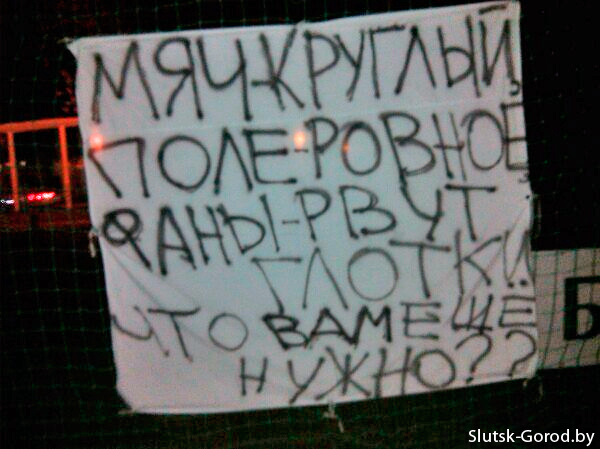 МЯЧ-КРУГЛЫЙ,
ПОЛЕ-РОВНОЕ,
ФАНЫ-РВУТ
ГЛОТКИ
ЧТО ВАМ ЕЩЕ
НУЖНО??
Б
Slutsk-Gorod.by